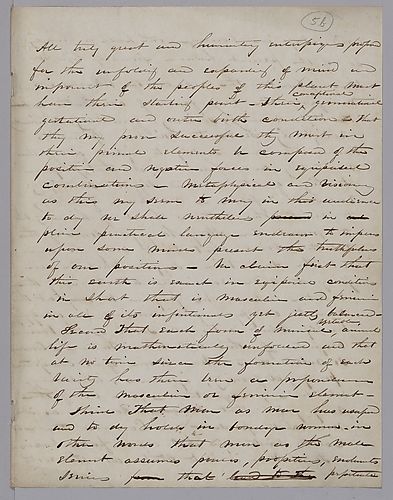 56
All truly great and humanitary enterprizes
for the unfolding and expanding of mind and
improvement of the peoples of this planet must
conceptional
have their starting point – Their germinative
gestational and outer birth condition & that
they may prove successful they must in
their primal elements be composed of the
positive and negative forces in equipoised
combinations – Metaphysical and visionary
as this may seem to many in this audience
to day we shall nevertheless in
plain practical language endeavor to impress
upon some minds present the truthfulness
of our positions – We claim first that
this earth is equipoised condition
in short that is masculine and feminine
in all of its yet justly balanced –
Second That each form of mineral animal
life is mathematically unfolded and that
at no time since the formation of each
has there been a preponderance
of the masculine or feminine element –
Third That Man as man has usurped
and to day holds in bondage woman – in
other words that man as the male
element assumes powers, properties,
that perpetuate